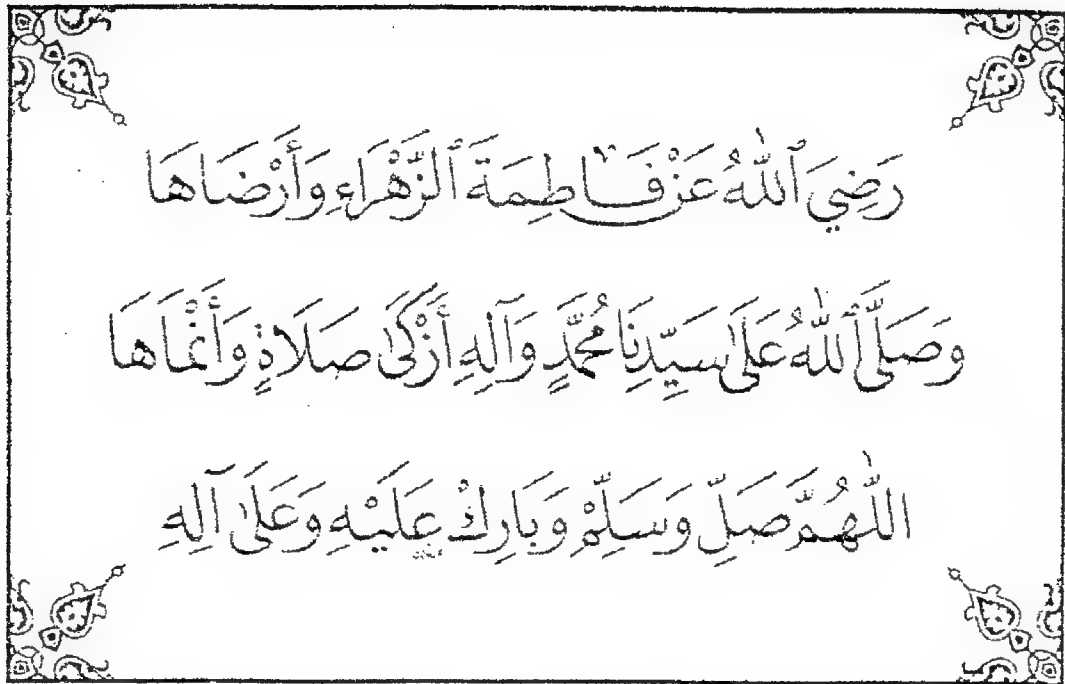 رَضِيَ ٱللَّٰهُ عَنْ فَاطِمَةَ ٱلزَّهْرَاءِ وَأَرْضَاهَا
وَصَلَّىٰ ٱللَّٰهُ عَلَىٰ سَيِّدِنَا مُحَمَّدٍ وَآلِهِ أَزْكَىٰ صَلَاةٍ وَأَنْمَاهَا
اللَّٰهُمَّ صَلِّ وَسَلِّمْ وَبَارِكْ عَلَيْهِ وَعَلَىٰ آلِهِ